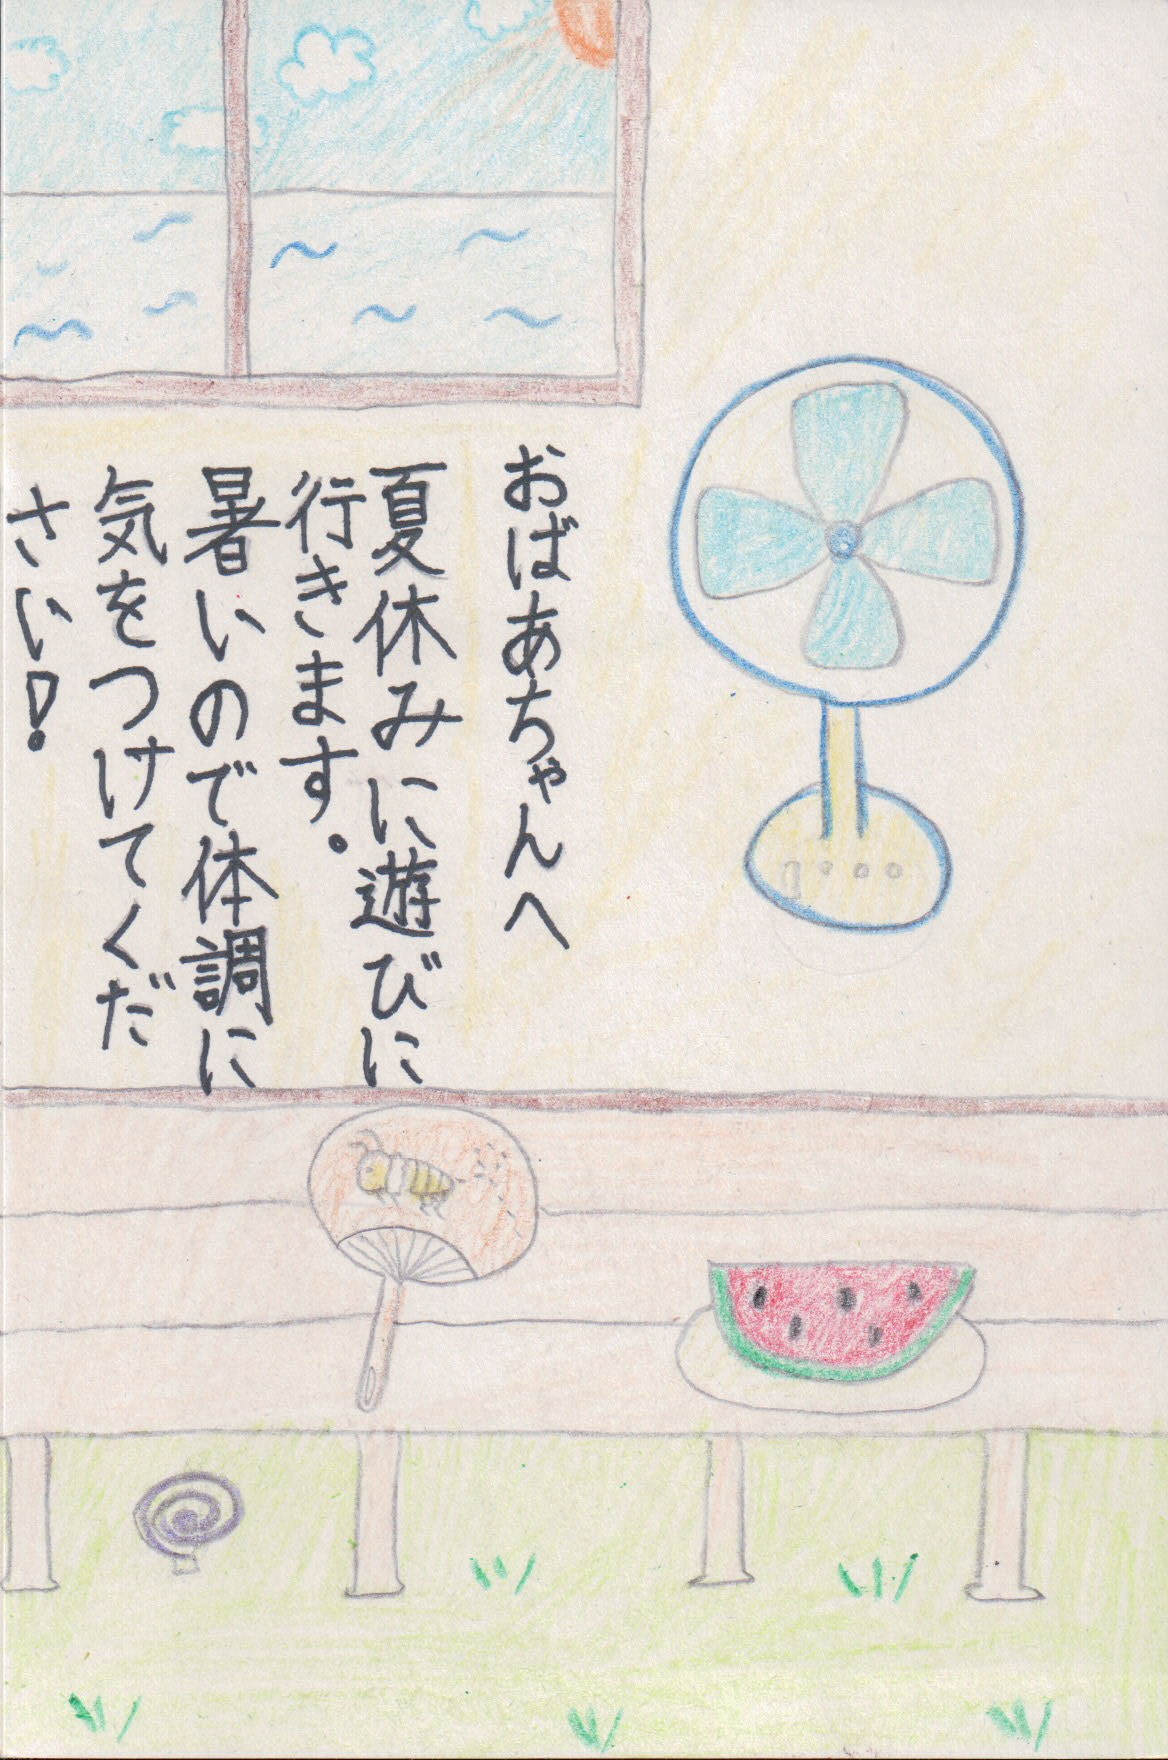 おばあちゃんへ
夏休みに遊びに
行きます。
暑いので体調に
気をつけてくだ
さい!